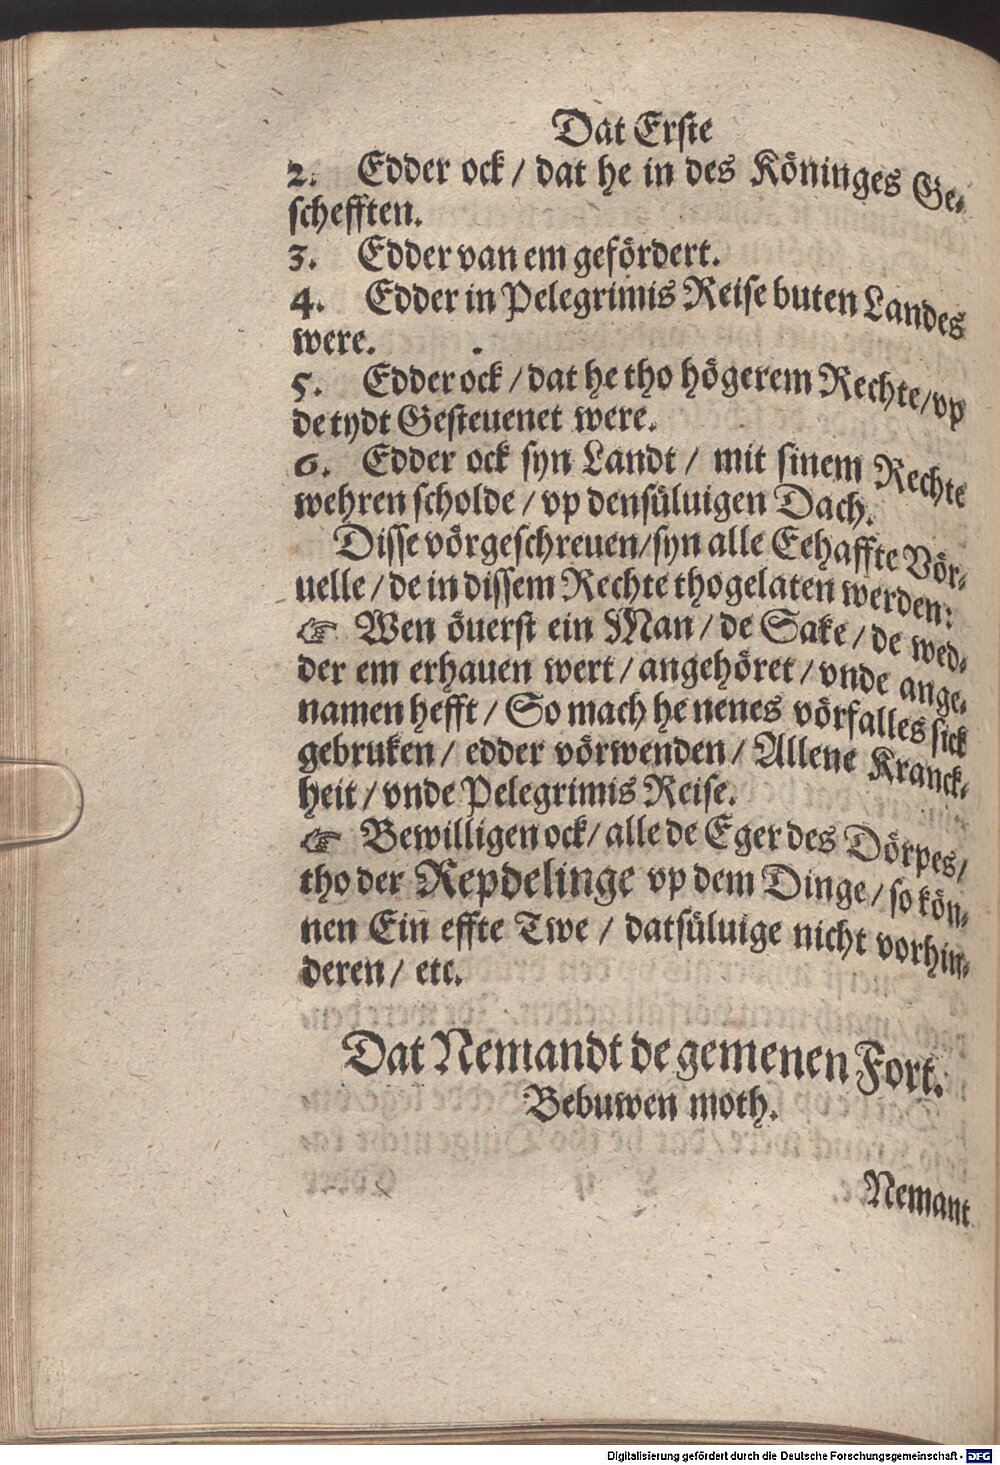 Dat Erste
2. Edder ock / dat he in des Köninges Ge-
schefften.
3. Edder van em gefördert.
4. Edder in Pelegrimis Reise buten Landes
were.
5. Edder ock / dat he tho högerem Rechte / vp
de tydt Gesteuenet were.
6. Edder ock syn Landt / mit sinem Rechte
wehren scholde / vp densüluigen Dach.
Disse vörgeschreuen / syn alle Eehaffte Vör-
uelle / de in dissem Rechte thogelaten werden:
☞ Wen öuerst ein Man / de Sake / de wed-
der em erhauen wert / angehöret / vnde ange-
namen hefft / So mach he nenes vörfalles sick
gebruken / edder vörwenden / Allene Kranck-
heit / vnde Pelegrimis Reise.
☞ Bewilligen ock / alle de Eger des Dörpes /
tho der Repdelinge vp dem Dinge / so kön-
nen Ein effte Twe / datsüluige nicht vorhin-
deren / etc.
Dat Nemandt de gemenen Fort.
Bebuwen moth.
Nemant
Digitalisierung gefördert durch die Deutsche Forschungsgemeinschaft - DFG